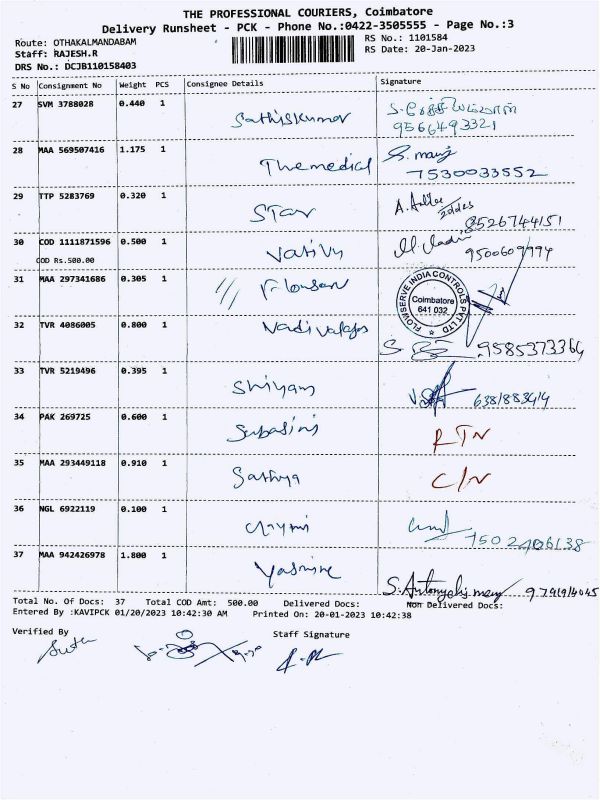 THE PROFESSIONAL COURIERS, Coimbatore
Delivery Runsheet - PCK - Phone No.:0422-3505555 - Page No.:3
Route: OTHAKALMANDABAM
RS No.: 1101584
Staff: RAJESH.R
RS Date: 20-Jan-2023
DRS No.: DCJB110158403
S No Consignment No Weight PCS Consignee Details Signature
27 SVM 3788028 0.440 1 Sathiskumar
9566493321
28 MAA 569507416 1.175 1 Themedical S. manj
7530033552
29 TTP 5283769 0.320 1 Star
8526744151
30 COD 1111871596 0.500 1
COD Rs.500.00
9500609994
31 MAA 297341686 0.305 1
FLOWSERVE INDIA CONTROLS PVT LTD
Coimbatore
641 032
32 TVR 4086005 0.800 1
9585373364
33 TVR 5219496 0.395 1 Shiyam
34 PAK 269725 0.600 1 Subasini RTN
35 MAA 293449118 0.910 1 Sathya C/N
36 NGL 6922119 0.100 1
37 MAA 942426978 1.800 1 Yasmine
Total No. Of Docs: 37 Total COD Amt: 500.00 Delivered Docs: Non Delivered Docs:
Entered By :KAVIPCK 01/20/2023 10:42:30 AM Printed On: 20-01-2023 10:42:38
Verified By
Staff Signature